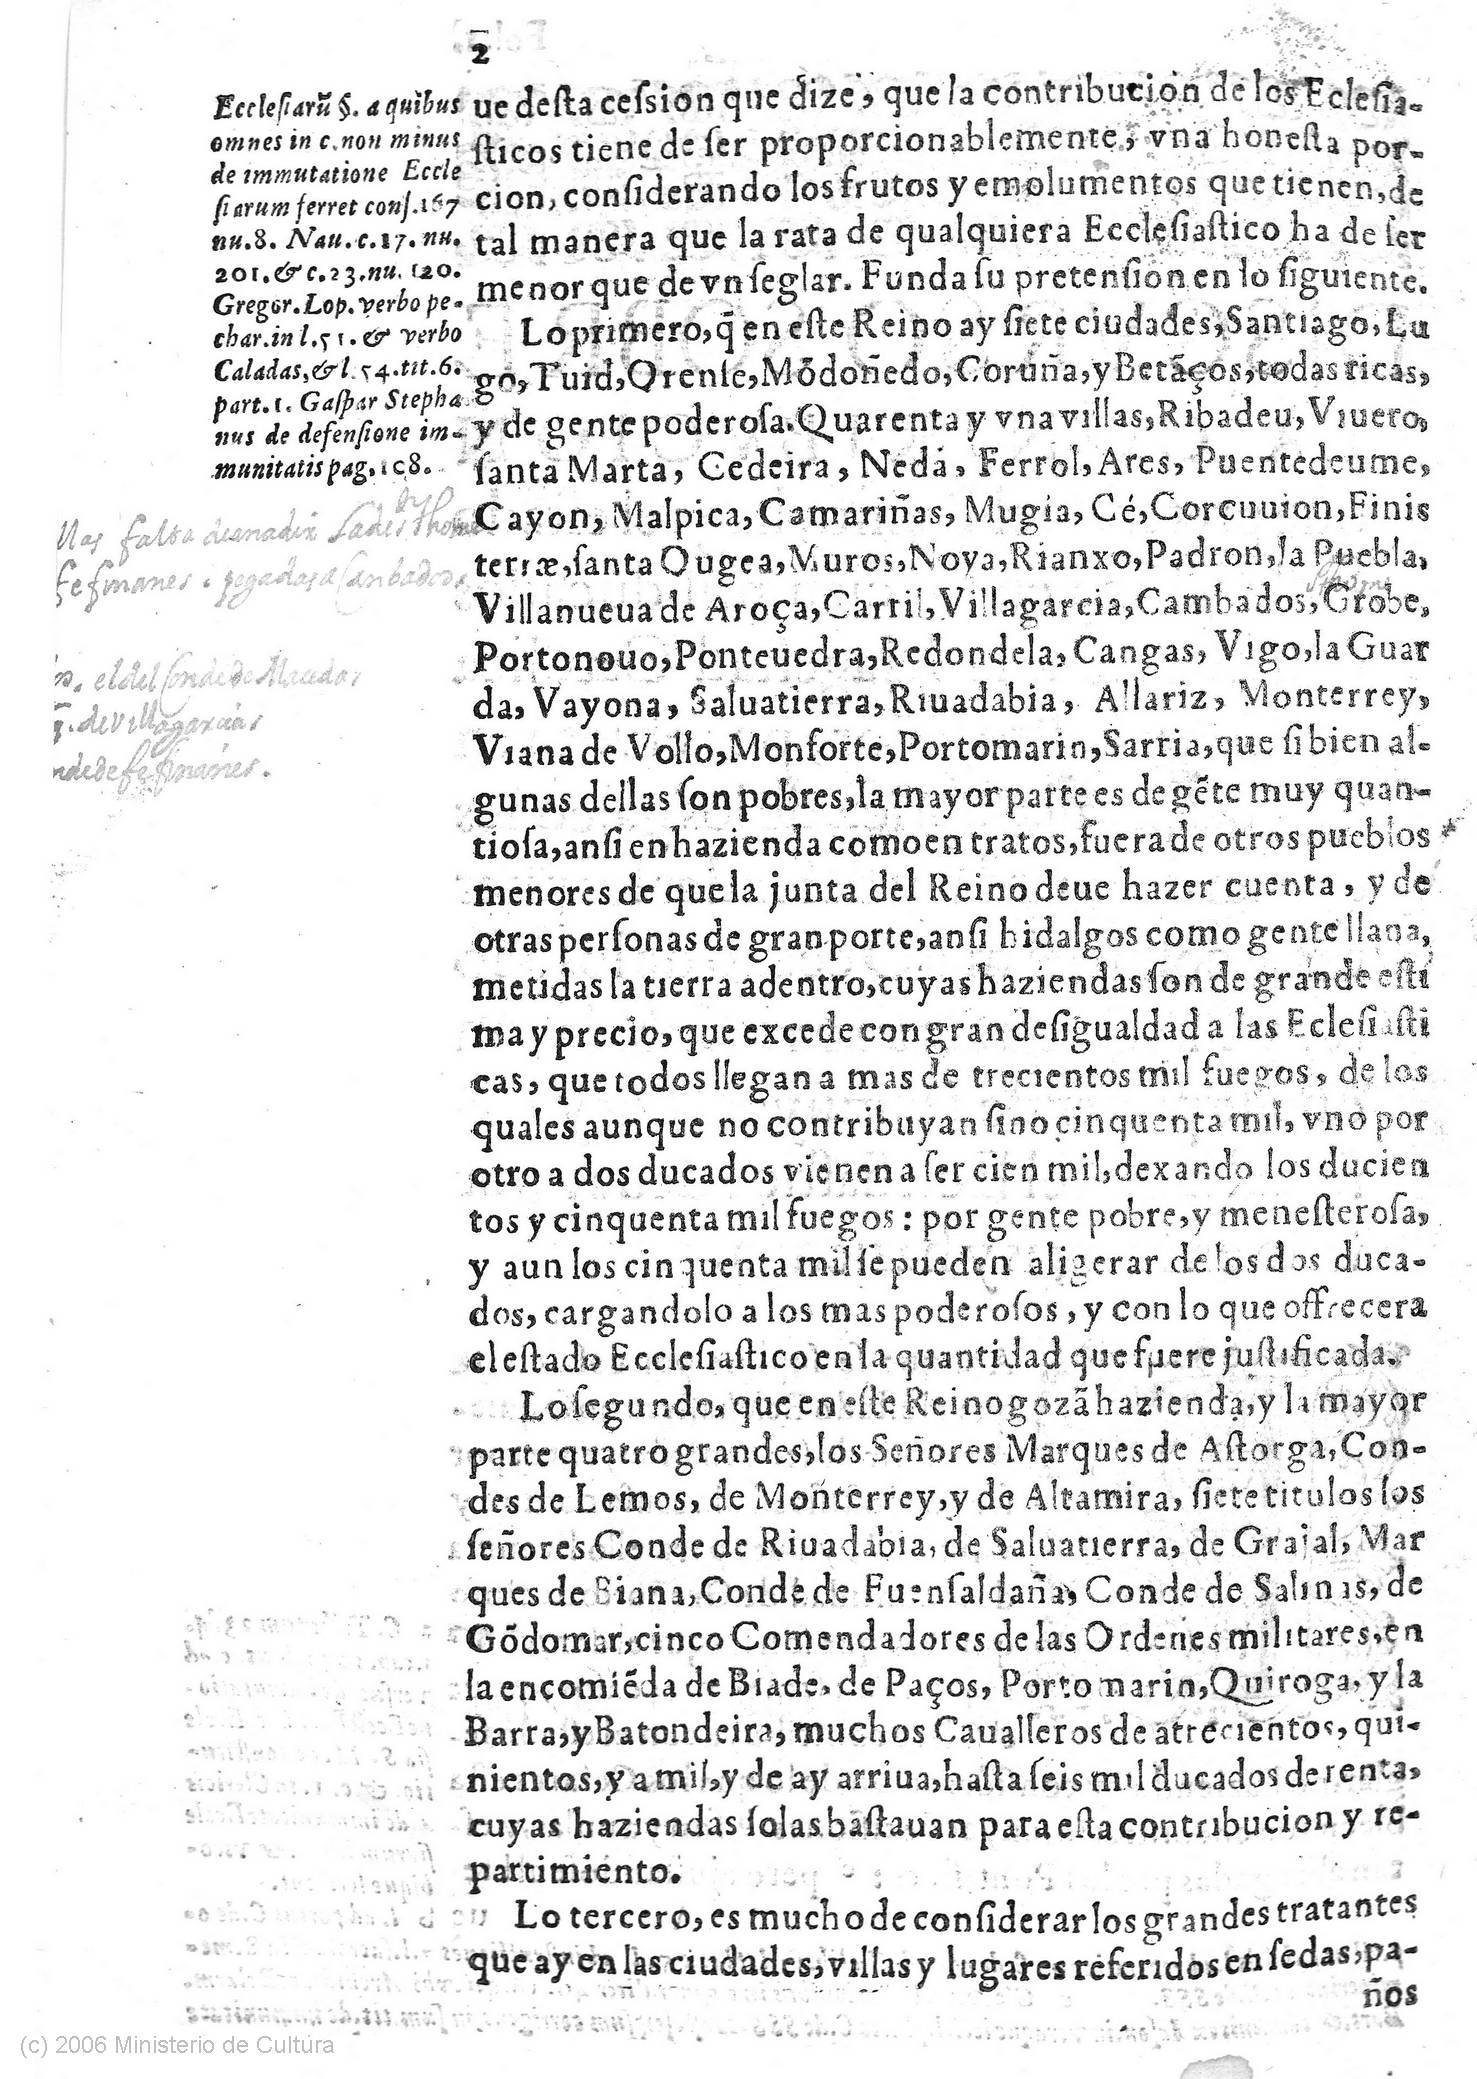 2
Ecclesiarũ §. a quibus
omnes in c. non minus
de immutatione Eccle
siarum ferret cons. 167
nu. 8. Nau. c. 17. nu.
201. & c. 23. nu. 120.
Gregor. Lop. verbo pe-
char. in l. 51. & verbo
Caladas, & l. 54. tit. 6.
part. 1. Gaspar Stepha
nus de defensione im-
munitatis pag. 108.
falta deanadir
fefinanes.
el del Conde de
de villagarcia
fefinanes.
ue desta cession que dize, que la contribucion de los Eclesia-
sticos tiene de ser proporcionablemente, vna honesta por-
cion, considerando los frutos y emolumentos que tienen, de
tal manera que la rata de qualquiera Ecclesiastico ha de ser
menor que de vn seglar. Funda su pretension en lo siguiente.
Lo primero, q̃ en este Reino ay siete ciudades, Santiago, Lu
go, Tuid, Orense, Mõdoñedo, Coruña, y Betãços, todas ricas,
y de gente poderosa. Quarenta y vna villas, Ribadeu, Viuero,
santa Marta, Cedeira, Neda, Ferrol, Ares, Puentedeume,
Cayon, Malpica, Camariñas, Mugia, Cé, Corcuuion, Finis
terræ, santa Ougea, Muros, Noya, Rianxo, Padron, la Puebla,
Villanueua de Aroça, Carril, Villagarcia, Cambados, Grobe,
Portonouo, Ponteuedra, Redondela, Cangas, Vigo, la Guar
da, Vayona, Saluatierra, Riuadabia, Allariz, Monterrey,
Viana de Vollo, Monforte, Portomarin, Sarria, que si bien al-
gunas dellas son pobres, la mayor parte es de gẽte muy quan-
tiosa, ansi en hazienda como en tratos, fuera de otros pueblos
menores de que la junta del Reino deue hazer cuenta, y de
otras personas de gran porte, ansi hidalgos como gente llana,
metidas la tierra adentro, cuyas haziendas son de grande esti
ma y precio, que excede con gran desigualdad a las Eclesiasti
cas, que todos llegan a mas de trecientos mil fuegos, de los
quales aunque no contribuyan sino cinquenta mil, vno por
otro a dos ducados vienen a ser cien mil, dexando los ducien
tos y cinquenta mil fuegos: por gente pobre, y menesterosa,
y aun los cinquenta mil se pueden aligerar de los dos duca-
dos, cargandolo a los mas poderosos, y con lo que offrecera
el estado Ecclesiastico en la quantidad que fuere justificada.
Lo segundo, que en este Reino gozã hazienda, y la mayor
parte quatro grandes, los Señores Marques de Astorga, Con-
des de Lemos, de Monterrey, y de Altamira, siete titulos los
señores Conde de Riuadabia, de Saluatierra, de Grajal, Mar
ques de Biana, Conde de Fuensaldaña, Conde de Salinas, de
Gõdomar, cinco Comendadores de las Ordenes militares, en
la encomiẽda de Biade, de Paços, Portomarin, Quiroga, y la
Barra, y Batondeira, muchos Caualleros de a trecientos, qui-
nientos, y a mil, y de ay arriua, hasta seis mil ducados de renta,
cuyas haziendas solas bastauan para esta contribucion y re-
partimiento.
Lo tercero, es mucho de considerar los grandes tratantes
que ay en las ciudades, villas y lugares referidos en sedas, pa-
ños
(c) 2006 Ministerio de Cultura